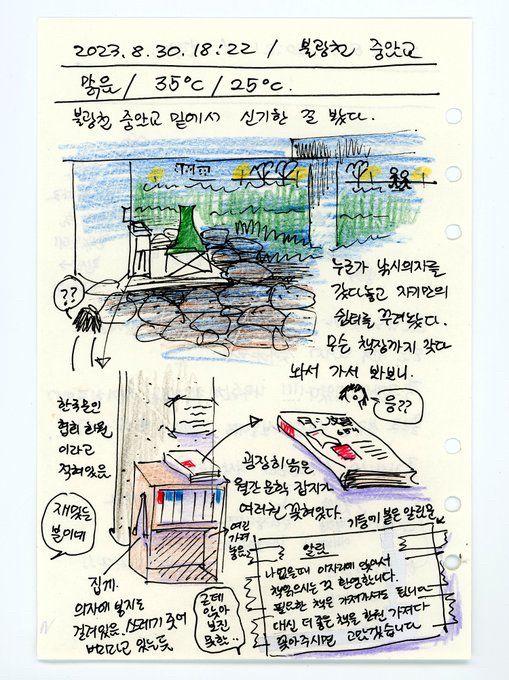 2023.8.30.18:22 / 불광천 중앙교
맑음 / 35℃ / 25℃.
불광천 중앙교 밑에서 신기한 곳 봤다.
??
누군가 낚시의자를
갖다놓고 자기만의
쉼터를 꾸며놨다.
무슨 책장까지 갖다
놔서 가서 봐보니.
응??
한국문인
협회 회원
이라고
적혀있음
굉장히 낡은
월간문학 잡지가
여러권 꽂혀있었다.
재밌는
분이네
집게.
의자에 봉지도
걸려있음. 쓰레기 주워
버리라고 있는듯
근데
앉아
보진
못함..
기둥에 붙은 알림문
알림
나 없을때 이 자리에 앉아서
책읽으시는 것 환영합니다.
필요한 책은 가져가셔도 됩니다
대신 더 좋은 책을 한권 가져다
꽂아주시면 고맙겠습니다